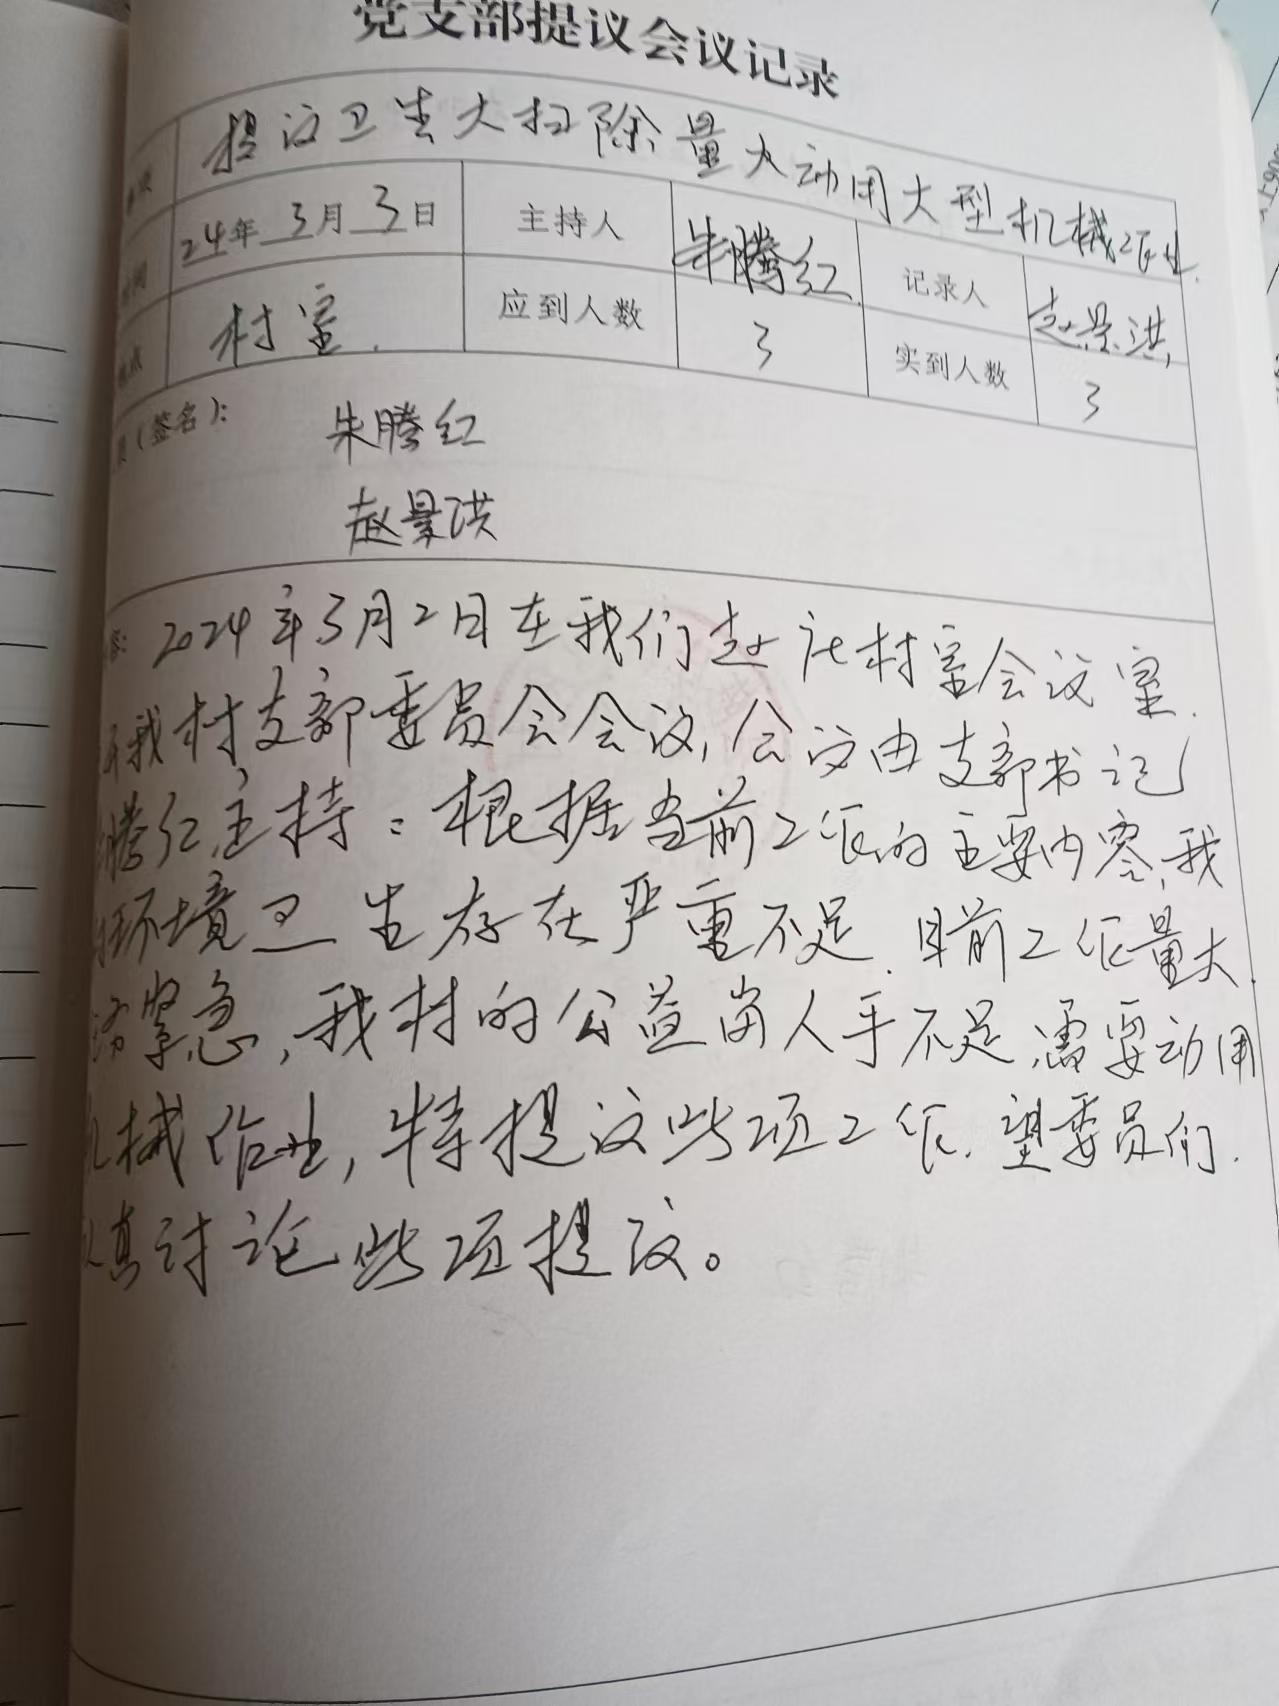 党支部提议会议记录
提议卫生大扫除量大动用大型机械作业.
24年3月3日 主持人 朱腾红 记录人 赵景洪
村室. 应到人数 3 实到人数 3
(签名): 朱腾红
赵景洪
2024年3月2日在我们赵庄村室会议室.
我村支部委员会会议,会议由支部书记
腾红主持:根据当前工作的主要内容,我
村环境卫生存在严重不足.目前工作量大.
务紧急,我村的公益岗人手不足,需要动用
机械作业,特提议此项工作.望委员们.
认真讨论此项提议。